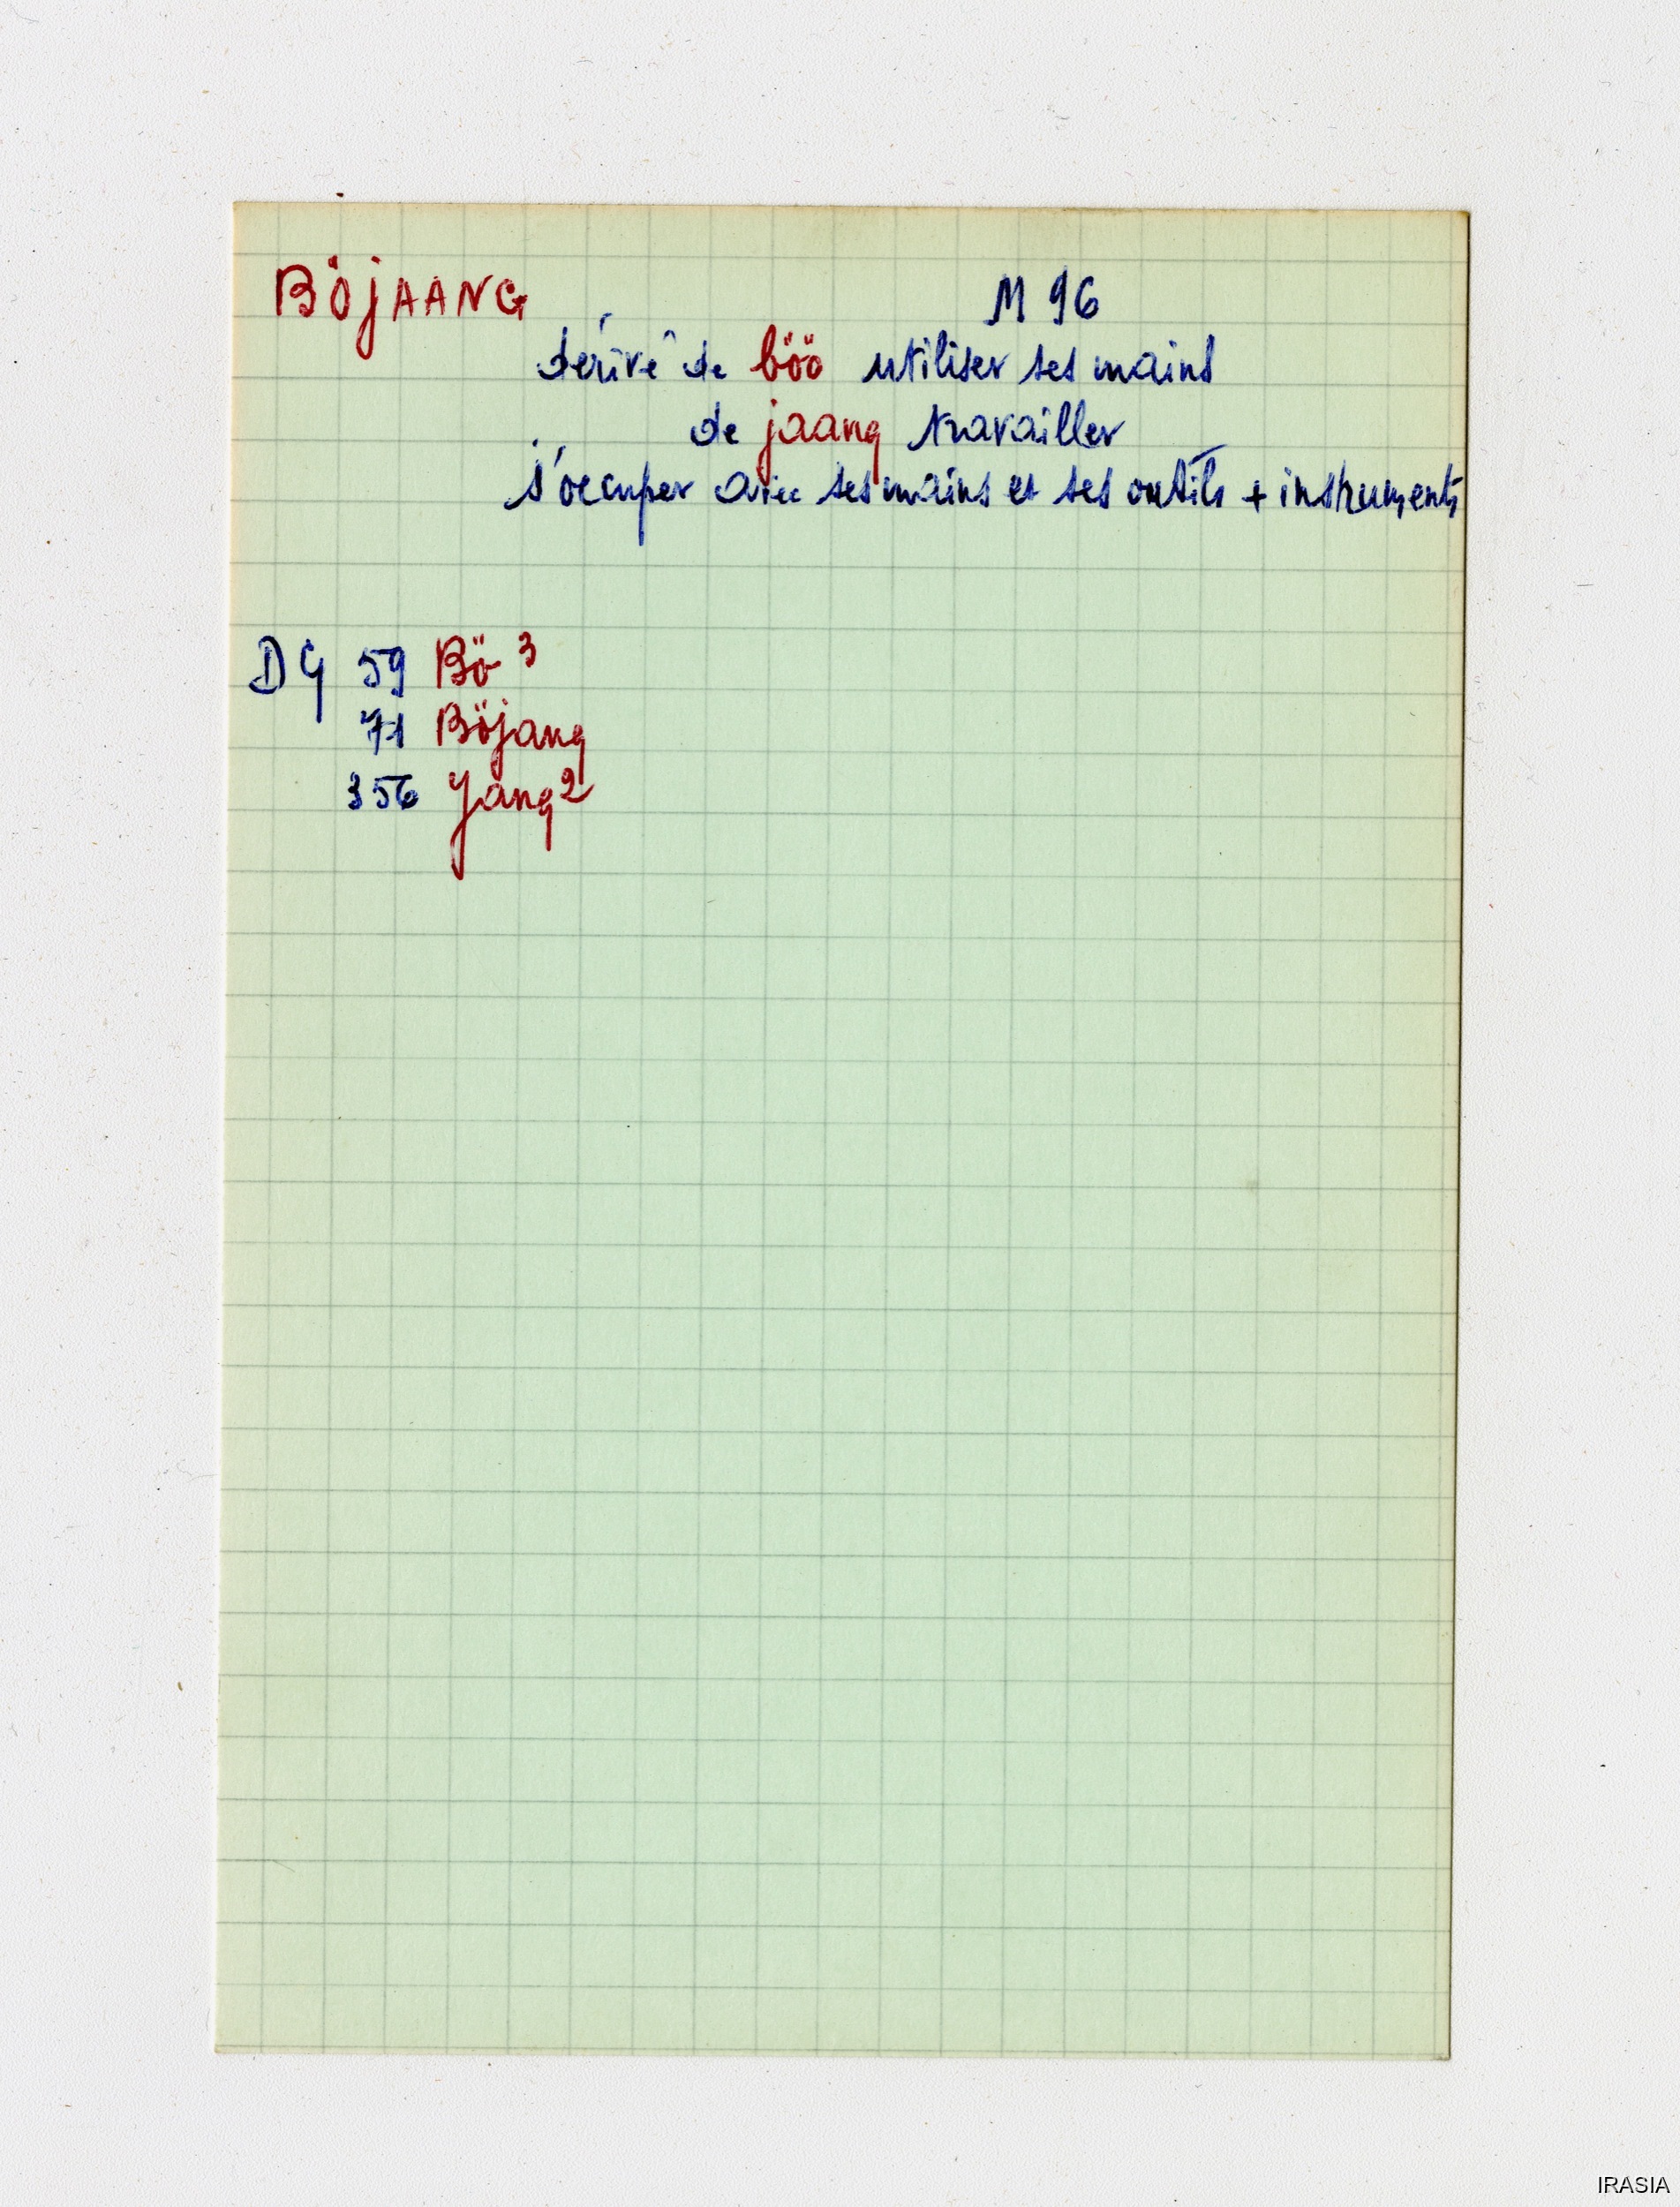 BÖJAANG M 96
dérivé de böö utiliser ses mains
de jaang travailler
s'occuper avec ses mains et ses outils + instruments
DG 59 Bö 3
71 Böjang
356 Yang 2
IRASIA